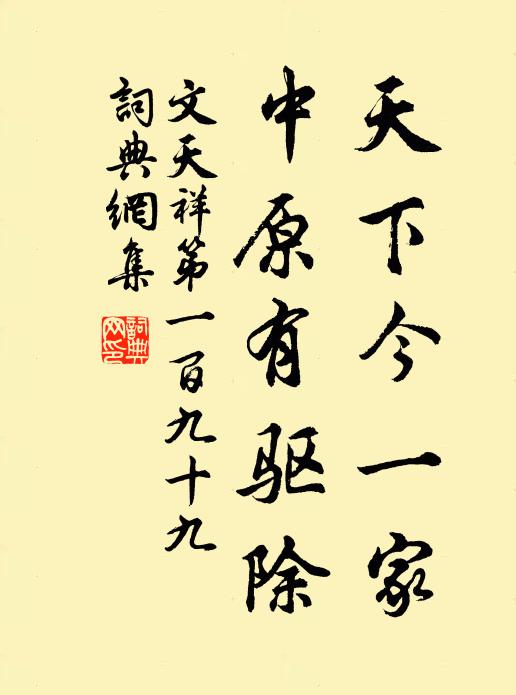 天下今一家
中原有驱除
文天祥第一百九十九
詞典網集
詞典网印